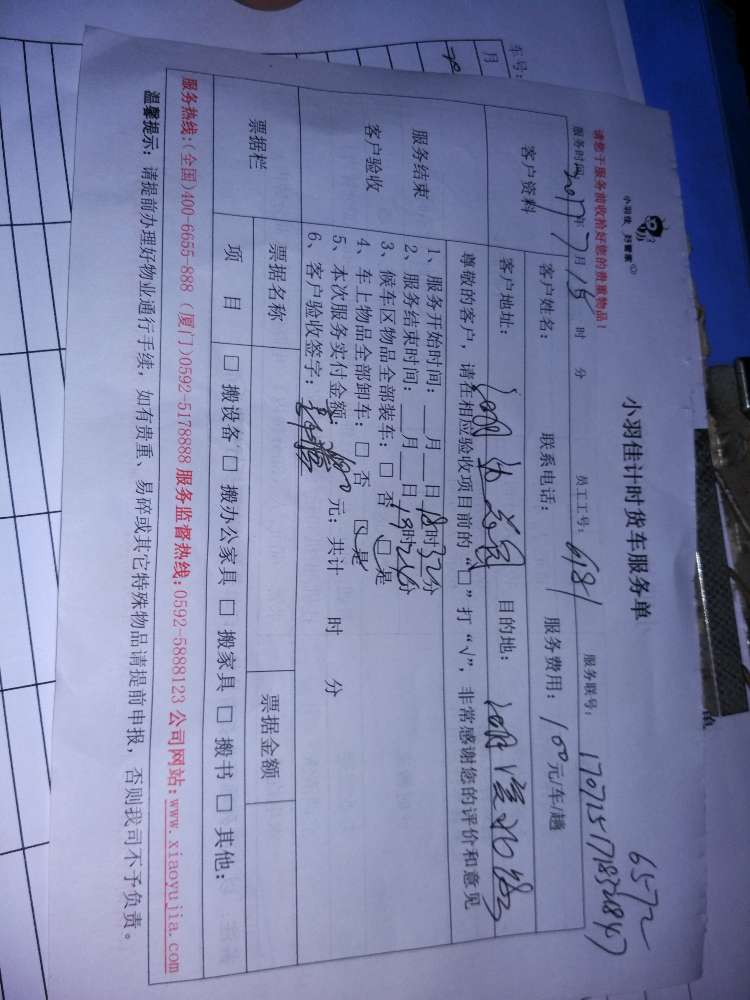 小羽佳 好管家
小羽佳计时货车服务单
6572
请您于服务前收拾好您的贵重物品!
服务时间: 2017年7月15 时 分 员工工号: 6181 服务联号:
客户资料
客户姓名: 联系电话: 服务费用: 100元/车/趟
客户地址: 目的地:
尊敬的客户,请在相应验收项目前的“□”打“√”,非常感谢您的评价和意见
服务结束
客户验收
1、服务开始时间:__月__日18时32分
2、服务结束时间:__月__日19时26分
3、候车区物品全部装车:□ 否 □ 是
4、车上物品全部卸车:□ 否 □ 是
5、本次服务实付金额: 元;共计 时 分
6、客户验收签字:
票据栏
票据名称 票据金额
项 目 □ 搬设备 □ 搬办公家具 □ 搬家具 □ 搬书 □ 其他:
服务热线:(全国)400-6655-888 (厦门)0592-5178888 服务监督热线:0592-5888123 公司网站:www.xiaoyujia.com
温馨提示:请提前办理好物业通行手续,如有贵重、易碎或其它特殊物品请提前申报,否则我司不予负责。
车号:
月